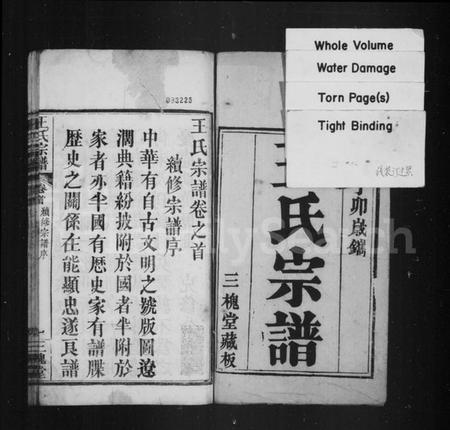 Whole Volume
Water Damage
Torn Page(s)
Tight Binding
卯歲鐫
王氏宗譜
三槐堂藏板
093225
王氏宗譜卷之首
續修宗譜序
中華有自古文明之號版圖遼
濶典籍紛披附於國者半附於
家者亦半國有歷史家有譜牒
歷史之關係在能顯忠遂良譜
王氏宗譜
卷首
續修宗譜序
一
三槐堂
FamilySearch